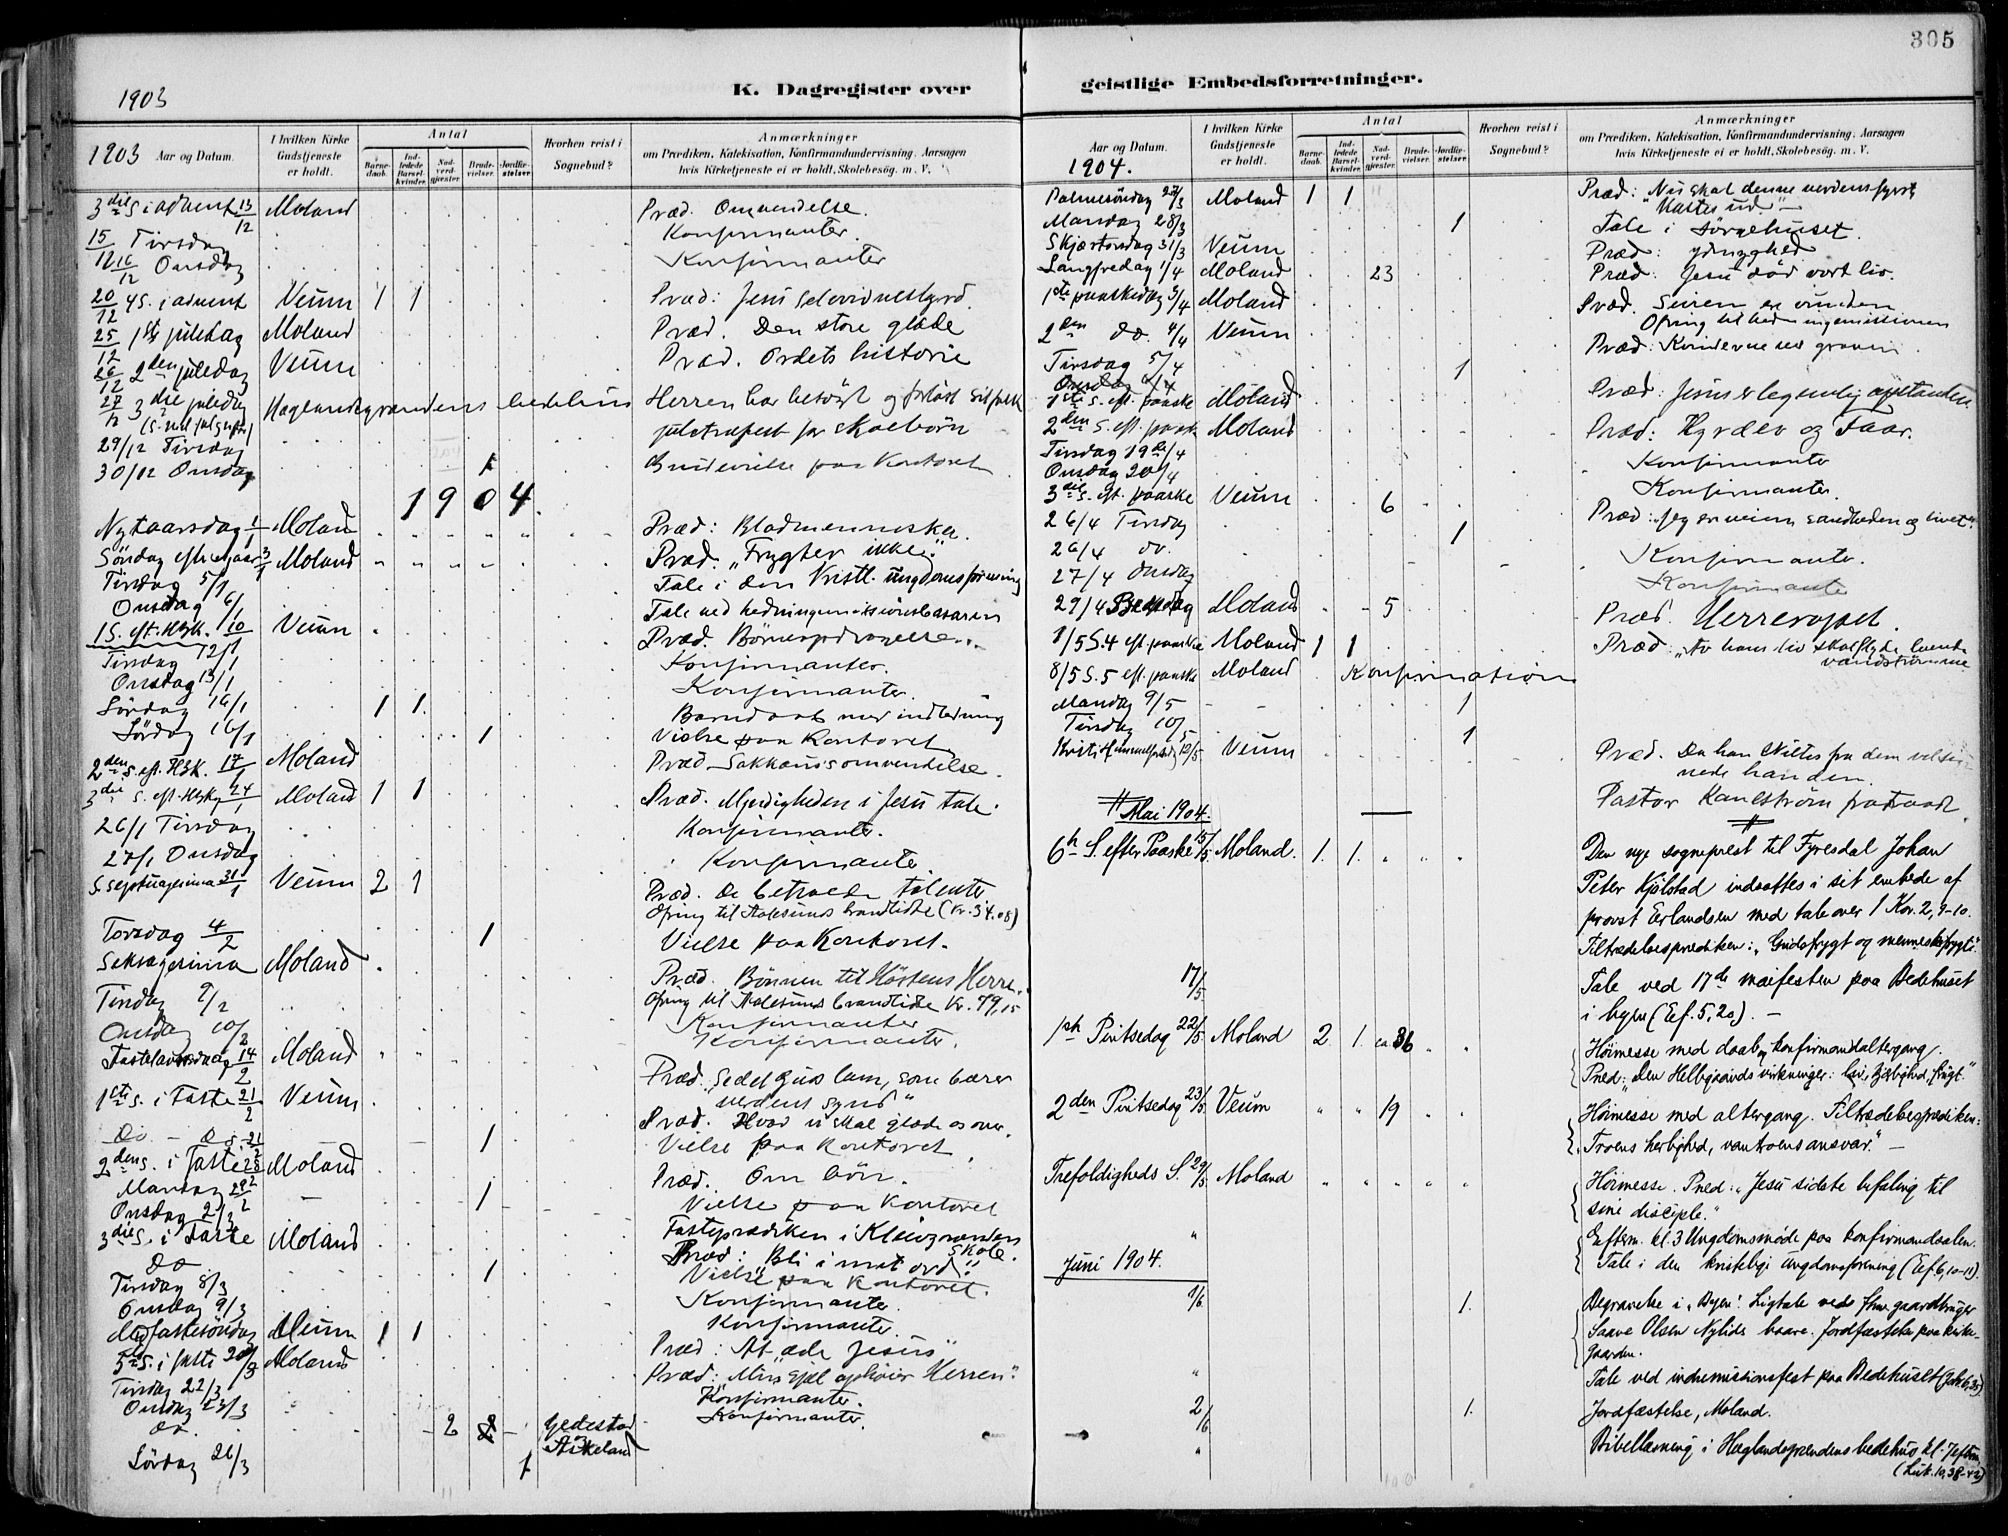 305
1903
K. Dagregister over geistlige Embedsforretninger.
1903 Aar og Datum.
I hvilken Kirke Gudstjeneste er holdt.
Antal
Barnedaab.
Indledede Barselkvinder.
Nadverdgjester.
Brudevielser.
Jordfæstelser.
Hvorhen reist i Sognebud?
Anmærkninger
om Prædiken, Katekisation, Konfirmandundervisning, Aarsagen
hvis Kirketjeneste ei er holdt, Skolebesøg. m. V.
3die S. i advent 13/12 Moland Præd. Omvendelse.
15/12 Tirsdag Konfirmanter.
16/12 Onsdag Konfirmanter
20/12 4 S. i advent Veum 1 1 Præd: Jesu selvvidnesbyrd
25/12 1ste juledag Moland Præd. Den store glæde
26/12 2den juledag Veum Præd. Ordets historie
27/12 3die juledag Haglandsgrændens bedehus Herren har besøgt og forløst sit folk
29/12 Tirsdag juletræfest for skolebörn
30/12 Onsdag 1 Brudevielse paa Kontoret
1904.
Nytaarsdag 1/1 Moland Præd: Bladmenneska.
Söndag efter nytaar 3/1 Moland Præd. "Frygter ikke."
Tirsdag 5/1 Tale i den Kristl. ungdomsforening
Onsdag 6/1 Tale ved hedningemissionsbasaren
1 S. eft. H3k. 10/1 Veum Præd. Börneopdragelse.
Tirsdag 12/1 Konfirmanter.
Onsdag 13/1 Konfirmanter.
Lördag 16/1 1 1 Barnedaab med indledning
Lördag 16/1 1 Vielse paa Kontoret
2den S. eft. H3k. 17/1 Moland Præd. Sakkæus's omvendelse.
3die S. eft. H3k 24/1 Moland 1 1 Præd. Myndigheden i Jesu tale.
26/1 Tirsdag Konfirmanter.
27/1 Onsdag Konfirmanter
S. septuagesima 31/1 Veum 2 1 Præd. De betroede talenter
Ofring til Aalesunds brandlidte (Kr. 34.08)
Torsdag 4/2 1 Vielse paa Kontoret.
Seksagesima Moland Præd. Bönnen til Höstens Herre.
Ofring til Aalesunds brandlidte Kr. 49,15
Tirsdag 9/2 Konfirmanter
Onsdag 10/2 Konfirmanter.
Fastelavnsdag 14/2 Moland Præd. Se det Guds lam, som bærer
verdens synd"
1ste S. i Faste 21/2 Veum Præd. Hvad vi skal glæde os over.
Do - Do 21/2 1 Vielse paa Kontoret.
2den S. i Faste 28/2 Moland Præd. Om bön.
Mandag 29/2 1 Vielse paa Kontoret
Onsdag 2/3 Fasteprædiken i Kleivgrændens skole.
3die S. i Faste Moland Præd: Bli i mit ord".
Do 1 Vielse paa Kontoret.
Tirsdag 8/3 Konfirmanter.
Onsdag 9/3 Konfirmanter.
Midfastesöndag Veum 1 1 Præd: At æde Jesus"
5te S. i faste 20/3 Moland Præd: "Min sjæl ophöier Herren".
Tirsdag 22/3 Konfirmanter.
Onsdag 23/3 Konfirmanter.
Do. 2 Gedestad
Askeland
Lördag 26/3 1
Aar og Datum.
1904.
I hvilken Kirke Gudstjeneste er holdt.
Antal
Barnedaab.
Indledede Barselkvinder.
Nadverdgjester.
Brudevielser.
Jordfæstelser.
Hvorhen reist i Sognebud?
Anmærkninger
om Prædiken, Katekisation, Konfirmandundervisning, Aarsagen
hvis Kirketjeneste ei er holdt, Skolebesøg. m. V.
Palmesöndag 27/3 Moland 1 1 Præd: "Nu skal denne verdens fyrste
kastes ud"
Mandag 28/3 1 Tale i sörgehuset.
Skjærtorsdag 31/3 Veum Præd: ydmyghed
Langfredag 1/4 Moland 23 Præd: Jesu död vort liv.
1ste paaskedag 3/4 Moland Præd. Seiren er vunden
Ofring til hedningemissionen
2den do. 4/4 Veum Præd: Kvinderne ved graven.
Tirsdag 5/4 1
Onsdag 6/4
1ste S. eft. paaske Moland Præd: Jesus legemlig opstanden
2den S. eft. paaske Moland Præd: Hyrder og Faar.
Tirsdag 19de/4 Konfirmanter
Onsdag 20/4 Konfirmanter.
3die S. eft. paaske Veum 6 Præd: "Jeg er veien sandheden og livet".
26/4 Tirsdag 1
26/4 do. Konfirmanter.
27/4 Onsdag Konfirmante
29/4 Bededag Moland 5 Præd. Herreropet.
1/5 S. 4 eft. paaske Moland 1 1 Præd: "Av hans liv skal flyde levende
vandströmme
8/5 S. 5 eft. paaske Moland Konfirmation
Mandag 9/5 1
Tirsdag 10/5 1
Kristi Himmelfartsdag 12/5 Veum Præd. Da han skiltes fra dem velsignede
han dem.
Pastor Kaulström fratraadt.
Mai 1904.
6te S. efter Paaske 15/5 Moland. 1. 1. Den nye sogneprest til Fyresdal Johan
Peter Kjölstad indsattes i sit embede af
provst Erlandsen med tale over 1 Kor. 2, 9-10.
Tiltrædelsesprædiken: "Gudsfrygt og menneskefrygt".
17/5 Tale ved 17de maifesten paa Bedehuset
i byen (Ef. 5, 20). -
1ste Pintsedag 22/5 Moland 2 1. ca 36 Høimesse med daab, konfirmandaltergang.
Præd: "Den Helligaands virkninger: liv, kjærlighed, frugt."
2den Pintsedag 23/5 Veum 19 Høimesse med altergang. Tiltrædelsesprædiken:
"Troens herlighed, vantroens ansvar". -
Trefoldigheds S. 29/5 Moland Høimesse. Præd: "Jesu sidste befaling til
sine disciple."
" Efterm. kl. 3 Ungdomsmøde paa konfirmandsalen.
Tale i den kristelige ungdomsforening (Ef. 6, 10-11).
Juni 1904.
1/6 1. Begravelse i "Byen". Ligtale ved fhv. gaardbruger
Saave Olsen Nylids baare. Jordfæstelse paa kirkegaarden.
" Tale ved indremissionsfest paa Bedehuset (Joh. 6, 35)
2/6 1. Jordfæstelse, Moland.
" Bibellæsning i Haglandsgrændens bedehus kl. 7 eftm.
(Luk. 10, 38-42)